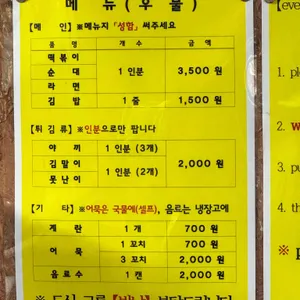 메 뉴 ( 우 물 )
【메 인】 ※메뉴지 「성함」 써주세요
품 명 개 수 금 액
떡볶이
순 대 1 인분 3,500 원
라 면
김 밥 1 줄 1,500 원
【튀 김 류】 ※인분으로만 팝니다
야 끼 1 인분 (3개)
김말이 1 인분 (2개) 2,000 원
못난이
【기 타】 ※어묵은 국물에(셀프), 음료는 냉장고에
계 란 1 개 700 원
어 묵 1 꼬치 700 원
3 꼬치 2,000 원
음료수 1 캔 2,000 원
[eve
1. pl
2. w
3. pu
4. th